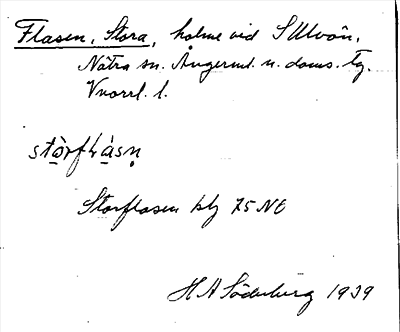 Flasen, Stora, holme vid S Ulvön,
Nätra sn. Ångerml. n. doms. tg.
Vnorrl. l.
stòrfɬàsṇ
Storflasen blz 75 NO
H A Söderberg 1939